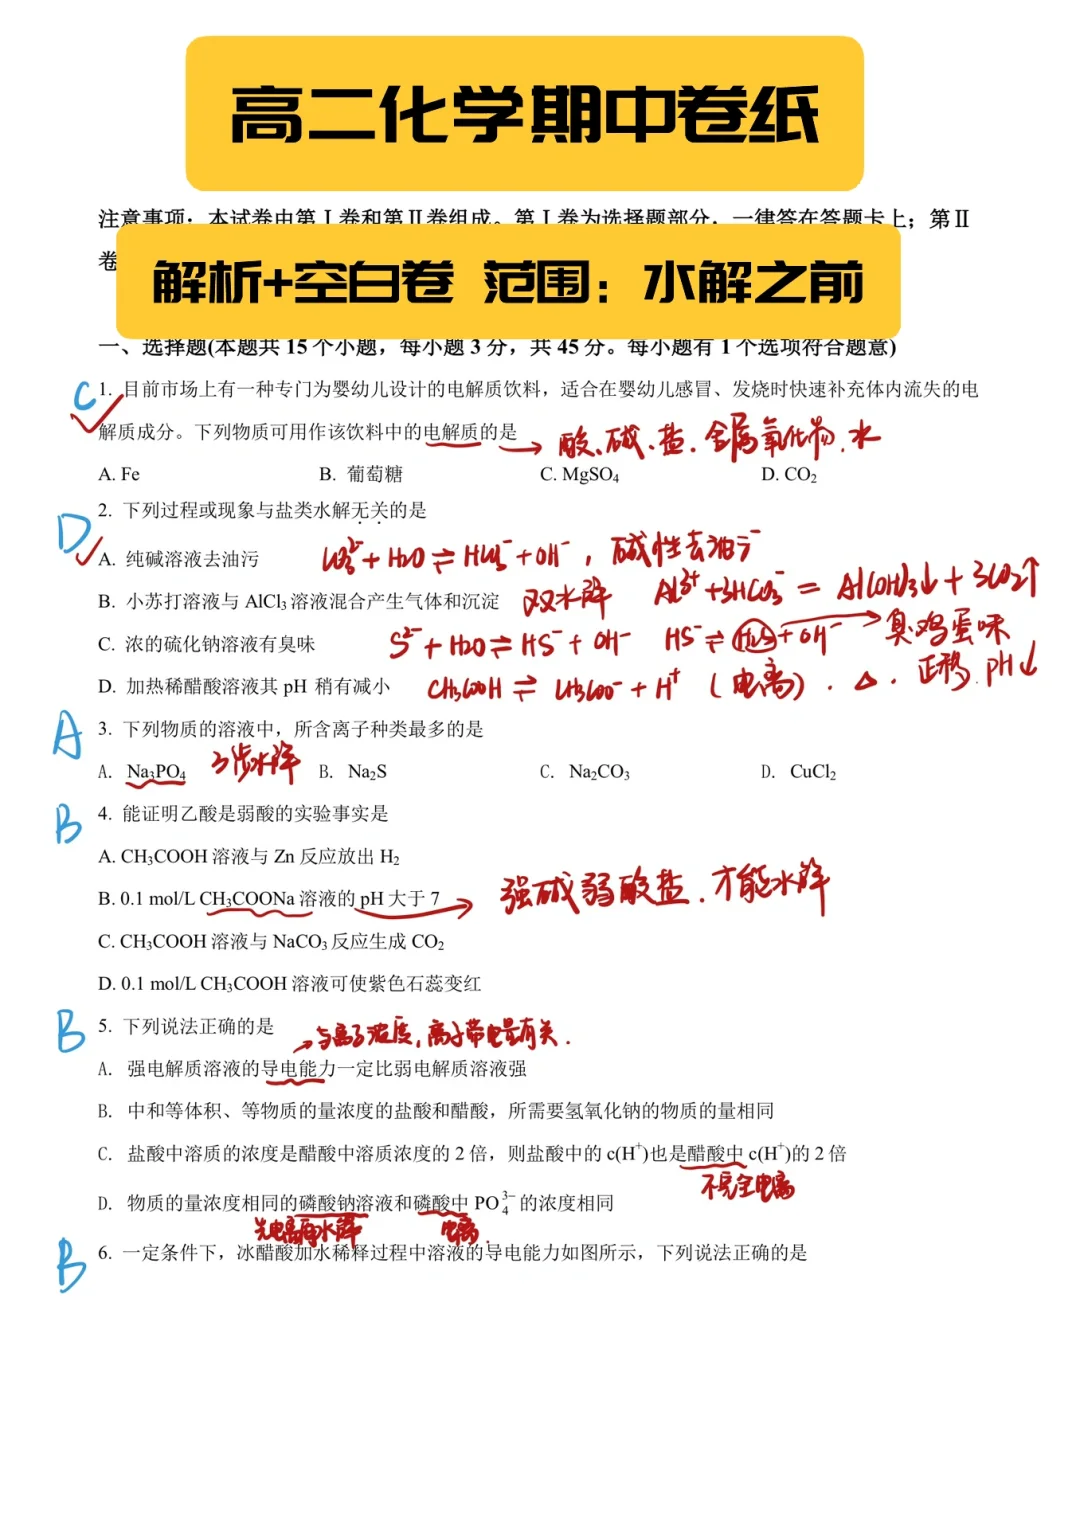 高二化学期中卷纸
注意事项：本试卷由第Ⅰ卷和第Ⅱ卷组成。第Ⅰ卷为选择题部分，一律答在答题卡上；第Ⅱ
卷
解析+空白卷 范围：水解之前
一、选择题(本题共 15 个小题，每小题 3 分，共 45 分。每小题有 1 个选项符合题意)
C 1. 目前市场上有一种专门为婴幼儿设计的电解质饮料，适合在婴幼儿感冒、发烧时快速补充体内流失的电
解质成分。下列物质可用作该饮料中的电解质的是 → 酸、碱、盐、金属氧化物、水
A. Fe B. 葡萄糖 C. MgSO₄ D. CO₂
D 2. 下列过程或现象与盐类水解无关的是
A. 纯碱溶液去油污 CO₃²⁻ + H₂O ⇌ HCO₃⁻ + OH⁻，碱性去油污
B. 小苏打溶液与 AlCl₃ 溶液混合产生气体和沉淀 双水解 Al³⁺ + 3HCO₃⁻ = Al(OH)₃↓ + 3CO₂↑
C. 浓的硫化钠溶液有臭味 S²⁻ + H₂O ⇌ HS⁻ + OH⁻ HS⁻ ⇌ H₂S + OH⁻ → 臭鸡蛋味
D. 加热稀醋酸溶液其 pH 稍有减小 CH₃COOH ⇌ CH₃COO⁻ + H⁺ (电离). △. 正移 pH↓
A 3. 下列物质的溶液中，所含离子种类最多的是
A. Na₃PO₄ 3步水解 B. Na₂S C. Na₂CO₃ D. CuCl₂
B 4. 能证明乙酸是弱酸的实验事实是
A. CH₃COOH 溶液与 Zn 反应放出 H₂
B. 0.1 mol/L CH₃COONa 溶液的 pH 大于 7 → 强碱弱酸盐.才能水解
C. CH₃COOH 溶液与 NaCO₃ 反应生成 CO₂
D. 0.1 mol/L CH₃COOH 溶液可使紫色石蕊变红
B 5. 下列说法正确的是 → 与离子浓度,离子带电量有关.
A. 强电解质溶液的导电能力一定比弱电解质溶液强
B. 中和等体积、等物质的量浓度的盐酸和醋酸，所需要氢氧化钠的物质的量相同
C. 盐酸中溶质的浓度是醋酸中溶质浓度的 2 倍，则盐酸中的 c(H⁺)也是醋酸中 c(H⁺)的 2 倍
不完全电离
D. 物质的量浓度相同的磷酸钠溶液和磷酸中 PO₄³⁻ 的浓度相同
先电离再水解 电离.
B 6. 一定条件下，冰醋酸加水稀释过程中溶液的导电能力如图所示，下列说法正确的是